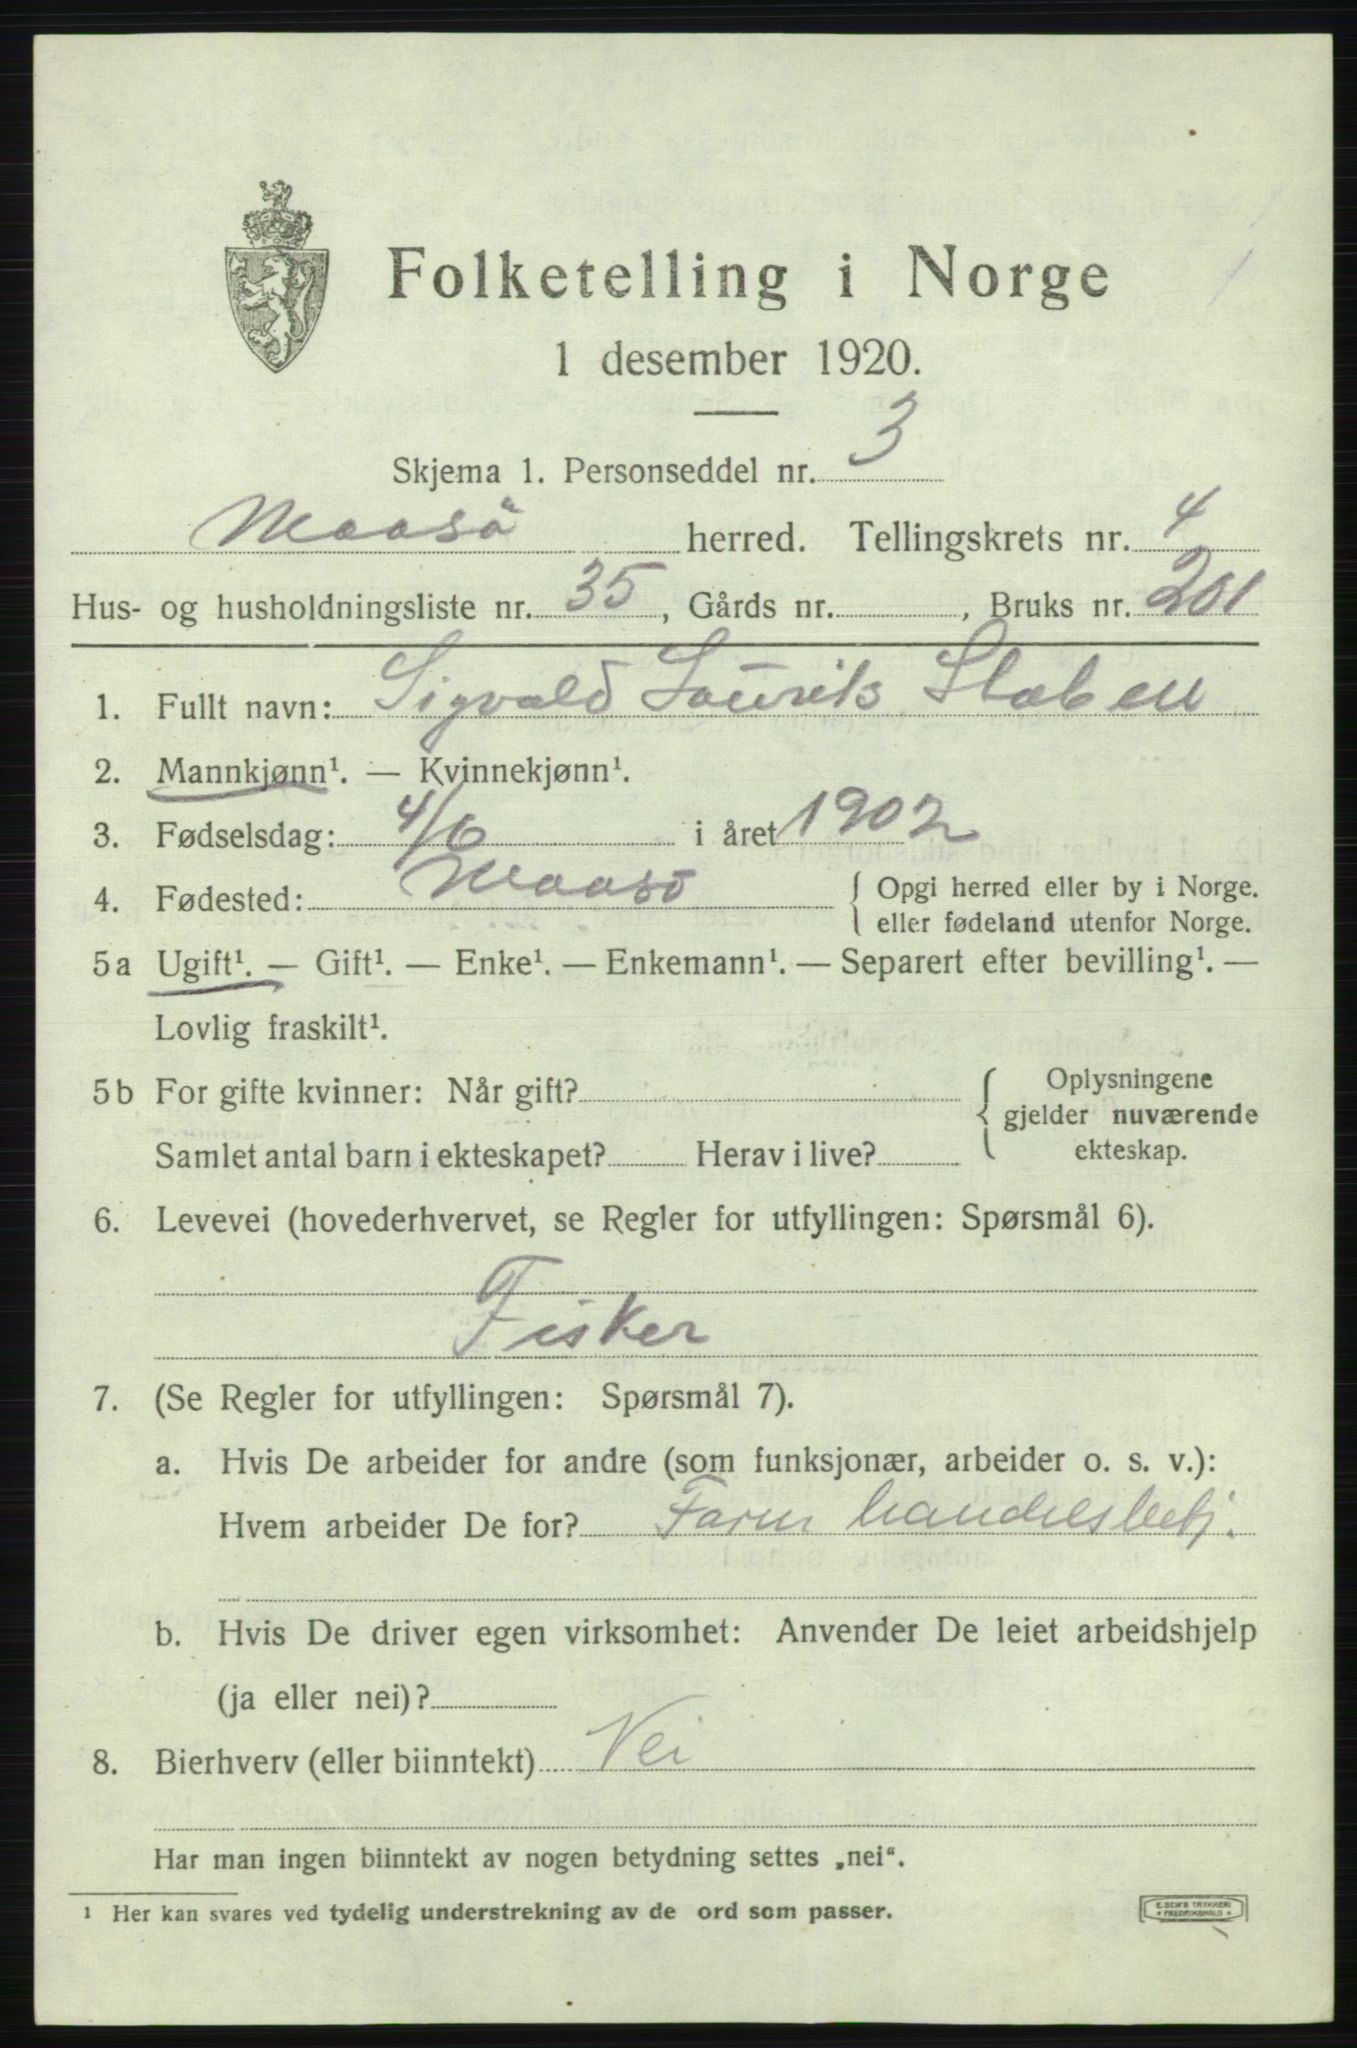 Folketelling i Norge
1 desember 1920.
Skjema 1. Personseddel nr. 3
Maasö herred. Tellingskrets nr. 4
Hus- og husholdningsliste nr. 35, Gårds nr. , Bruks nr. 201
1. Fullt navn: Sigvald Laurits Staben
2. Mannkjønn¹. — Kvinnekjønn¹.
3. Fødselsdag: 4/6 i året 1902
4. Fødested: Maasö { Opgi herred eller by i Norge.
eller fødeland utenfor Norge.
5a Ugift¹. — Gift¹. — Enke¹. — Enkemann¹. — Separert efter bevilling¹. —
Lovlig fraskilt¹.
5b For gifte kvinner: Når gift? { Oplysningene
gjelder nuværende
Samlet antal barn i ekteskapet? Herav i live? ekteskap.
6. Levevei (hovederhvervet, se Regler for utfyllingen: Spørsmål 6).
Fisker
7. (Se Regler for utfyllingen: Spørsmål 7).
a. Hvis De arbeider for andre (som funksjonær, arbeider o. s. v.):
Hvem arbeider De for? Farm handelsbetj.
b. Hvis De driver egen virksomhet: Anvender De leiet arbeidshjelp
(ja eller nei)?
8. Bierhverv (eller biinntekt) Nei
Har man ingen biinntekt av nogen betydning settes „nei“.
¹ Her kan svares ved tydelig understrekning av de ord som passer.
E. SEM'S TRYKKERI
* FREDRIKSHALD *